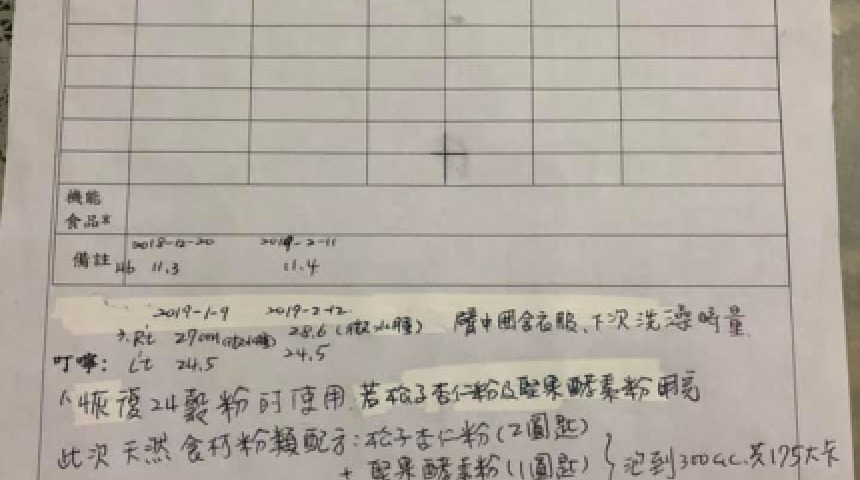 機能
食品*
2018-12-20 2019-2-11
備註 Hb 11.3 11.4
2019-1-9 2019-2-12
Rt 27cm(微水腫) 28.6(微水腫) 臂中圍含衣服,下次洗澡時量
叮嚀: Lt 24.5 24.5
恢復24穀粉的使用.若松子杏仁粉及堅果酵素粉用完
此次天然食材粉類配方:松子杏仁粉(2圓匙)
+堅果酵素粉(1圓匙) 泡到300c.c.共175大卡